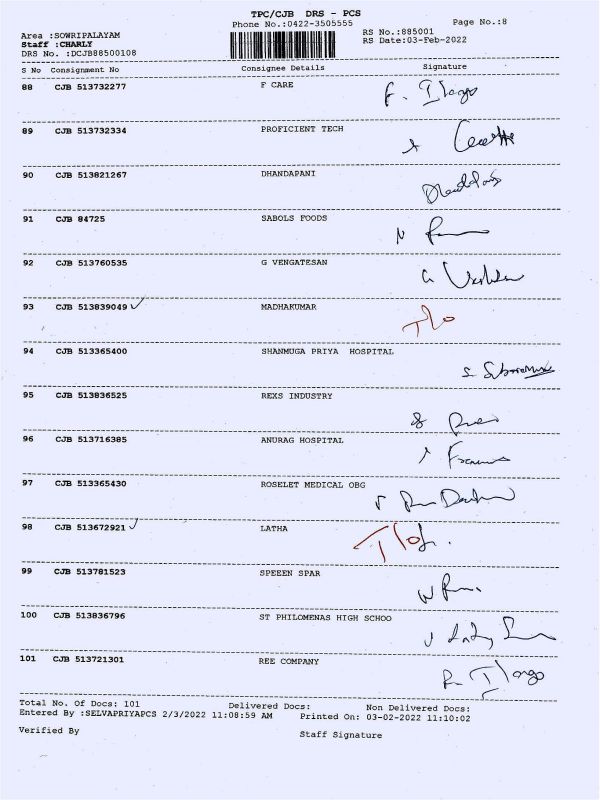 TPC/CJB DRS - PCS
Phone No.:0422-3505555 Page No.:8
Area :SOWRIPALAYAM RS No.:885001
Staff :CHARLY RS Date:03-Feb-2022
DRS No. :DCJB88500108
S No Consignment No Consignee Details Signature
88 CJB 513732277 F CARE F. Ilango
89 CJB 513732334 PROFICIENT TECH
90 CJB 513821267 DHANDAPANI
91 CJB 84725 SABOLS FOODS
92 CJB 513760535 G VENGATESAN
93 CJB 513839049 ✓ MADHAKUMAR
94 CJB 513365400 SHANMUGA PRIYA HOSPITAL
95 CJB 513836525 REXS INDUSTRY
96 CJB 513716385 ANURAG HOSPITAL
97 CJB 513365430 ROSELET MEDICAL OBG
98 CJB 513672921 ✓ LATHA
99 CJB 513781523 SPEEEN SPAR
100 CJB 513836796 ST PHILOMENAS HIGH SCHOO
101 CJB 513721301 REE COMPANY
Total No. Of Docs: 101 Delivered Docs: Non Delivered Docs:
Entered By :SELVAPRIYAPCS 2/3/2022 11:08:59 AM Printed On: 03-02-2022 11:10:02
Verified By Staff Signature